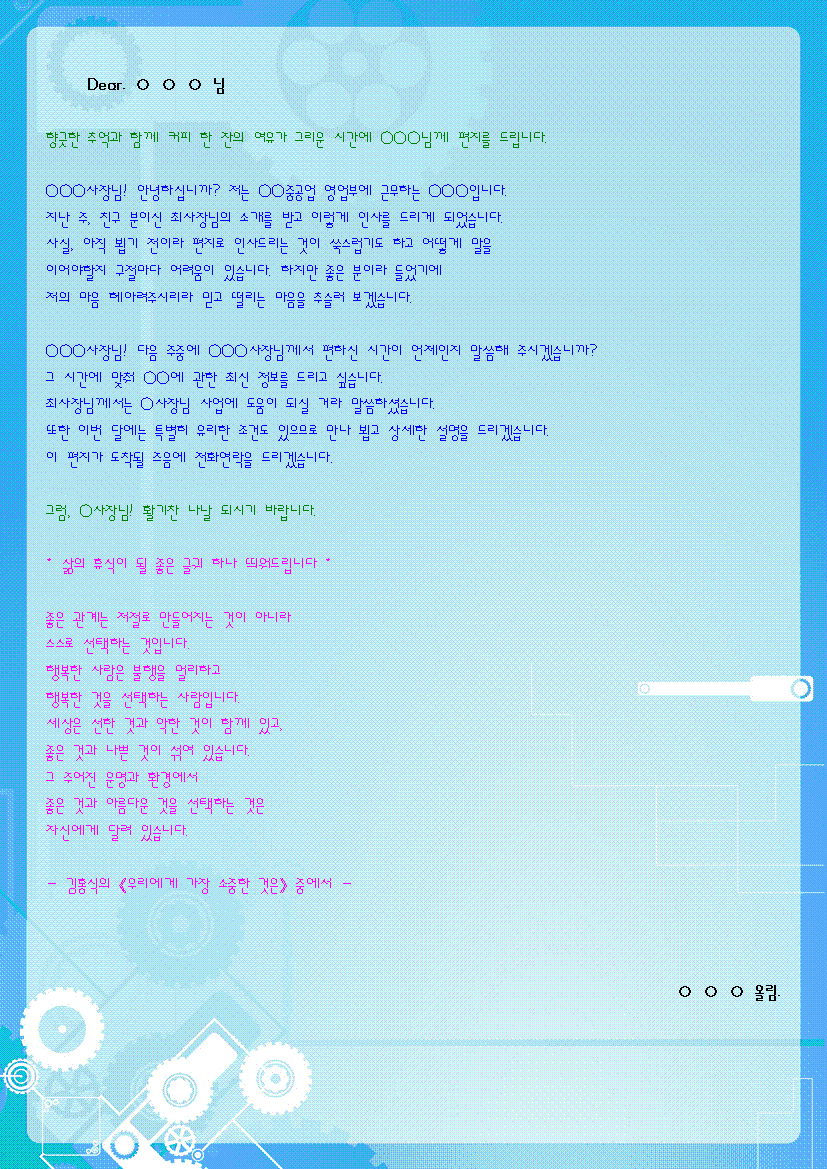 Dear. ○ ○ ○ 님
향긋한 추억과 함께 커피 한 잔의 여유가 그리운 시간에 ○○○님께 편지를 드립니다.
○○○사장님! 안녕하십니까? 저는 ○○중공업 영업부에 근무하는 ○○○입니다.
지난 주, 친구 분이신 최사장님의 소개를 받고 이렇게 인사를 드리게 되었습니다.
사실, 아직 뵙기 전이라 편지로 인사드리는 것이 쑥스럽기도 하고 어떻게 말을
이어야할지 구절마다 어려움이 있습니다. 하지만 좋은 분이라 들었기에
저의 마음 헤아려주시리라 믿고 떨리는 마음을 추슬러 보겠습니다.
○○○사장님! 다음 주중에 ○○○사장님께서 편하신 시간이 언제인지 말씀해 주시겠습니까?
그 시간에 맞춰 ○○에 관한 최신 정보를 드리고 싶습니다.
최사장님께서는 ○사장님 사업에 도움이 되실 거라 말씀하셨습니다.
또한 이번 달에는 특별히 유리한 조건도 있으므로 만나 뵙고 상세한 설명을 드리겠습니다.
이 편지가 도착될 즈음에 전화연락을 드리겠습니다.
그럼, ○사장님! 활기찬 나날 되시기 바랍니다.
* 삶의 휴식이 될 좋은 글귀 하나 띄워드립니다 *
좋은 관계는 저절로 만들어지는 것이 아니라
스스로 선택하는 것입니다.
행복한 사람은 불행을 멀리하고
행복한 것을 선택하는 사람입니다.
세상은 선한 것과 악한 것이 함께 있고,
좋은 것과 나쁜 것이 섞여 있습니다.
그 주어진 운명과 환경에서
좋은 것과 아름다운 것을 선택하는 것은
자신에게 달려 있습니다.
- 김홍식의 《우리에게 가장 소중한 것은》 중에서 -
○ ○ ○ 올림.